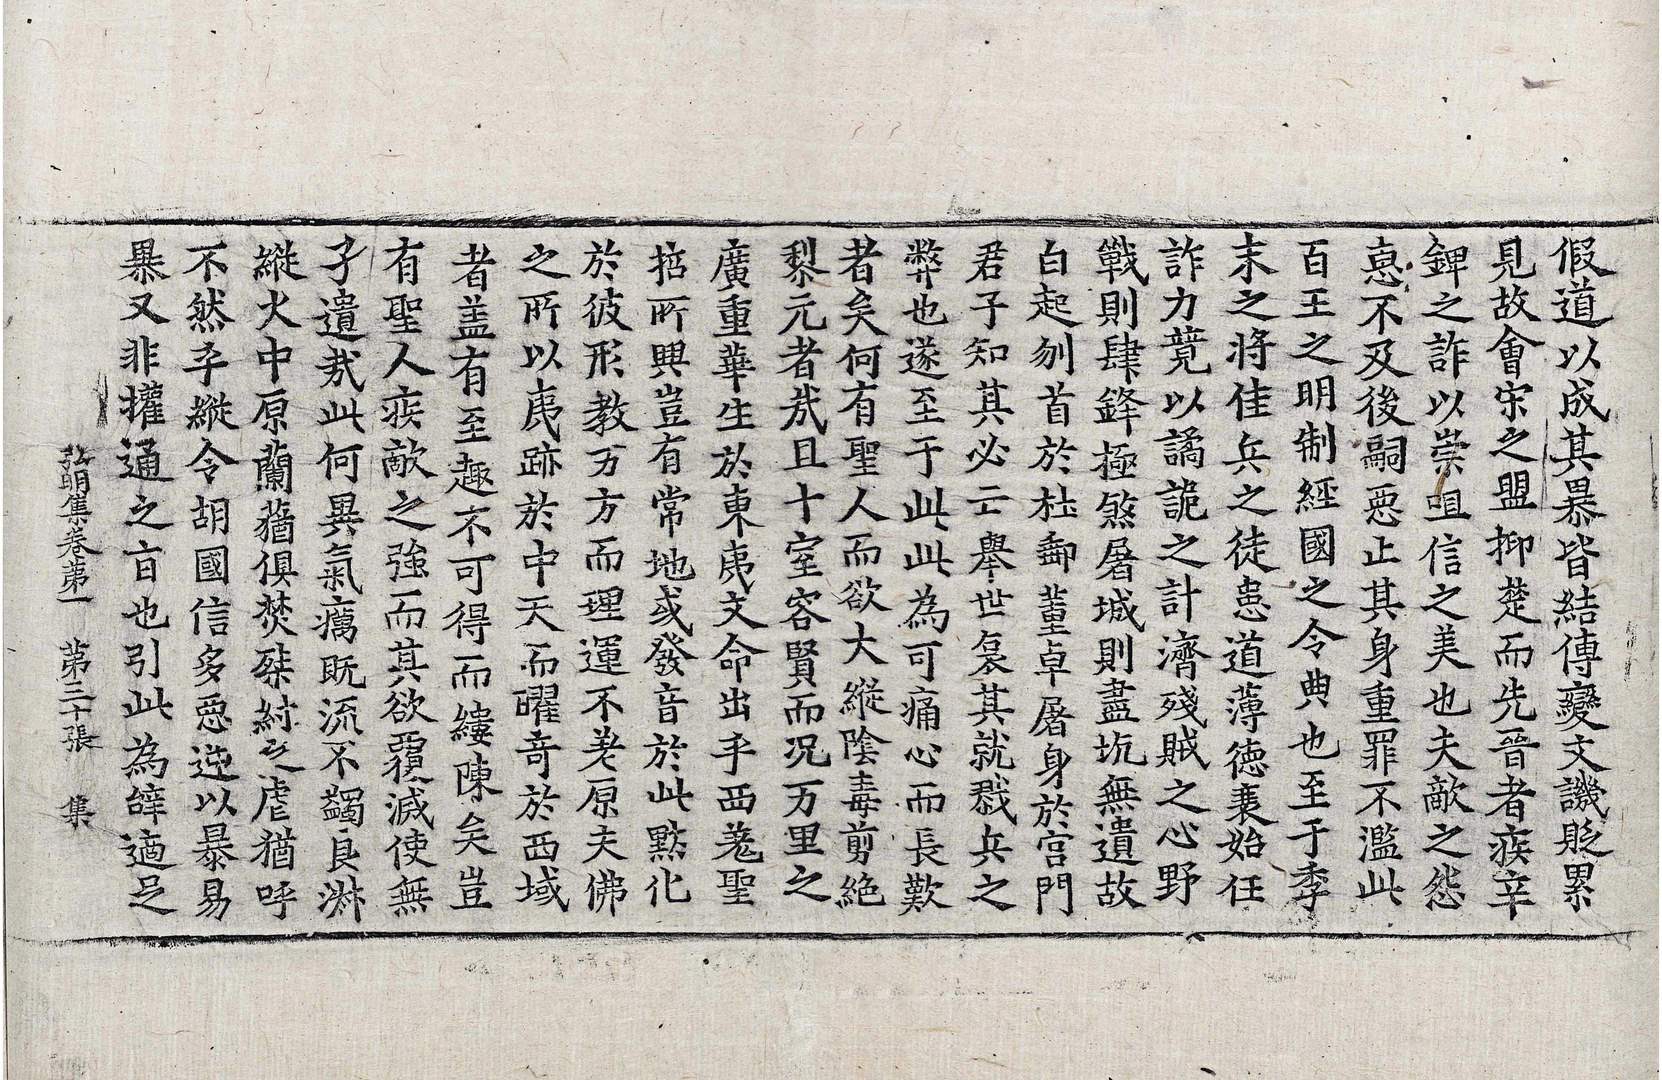 假道以成其暴皆結傳變文譏貶累
見故會宋之盟抑楚而先晉者疾辛
鉀之詐以崇咀信之美也夫敵之怨
惠不及後嗣惡止其身重罪不濫此
百王之明制經國之令典也至于季
末之將佳兵之徒患道薄德衰始任
詐力競以譎詭之計濟殘賊之心野
戰則肆鋒極煞屠城則盡坑無遺故
白起刎首於杜郵董卓屠身於宮門
君子知其必亡舉世哀其就戮兵之
弊也遂至于此此為可痛心而長歎
者矣何有聖人而欲大縱陰毒剪絕
黎元者哉且十室容賢而况万里之
廣重華生於東夷文命出乎西羌聖
哲所興豈有常地或發音於此默化
於彼形教万方而理運不差原夫佛
之所以夷跡於中天而曜奇於西域
者盖有至趣不可得而縷陳矣豈
有聖人疾敵之強而其欲覆滅使無
孑遺哉此何異氣癘既流不蠲良淋
縱火中原蘭蕕俱焚桀紂之虐猶呼
不然乎縱令胡國信多惡逆以暴易
暴又非權通之旨也引此為辞適足
弘明集卷第一　第三十張　集